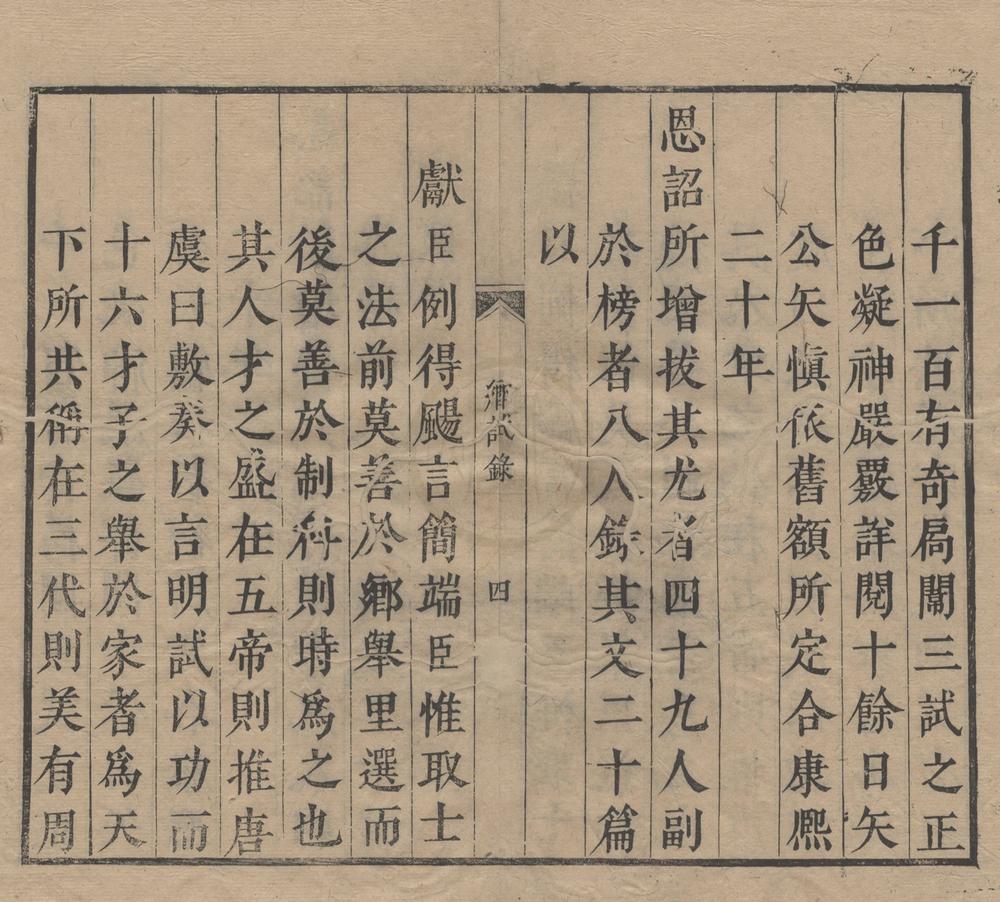 千一百有奇扃闈三試之正
色凝神嚴覈詳閱十餘日矢
公矢慎依舊額所定合康熙
二十年
恩詔所增拔其尤者四十九人副
於榜者八人錄其文二十篇
以
齊試錄
四
獻臣例得颺言簡端臣惟取士
之法前莫善於鄉舉里選而
後莫善於制科則時為之也
其人才之盛在五帝則推唐
虞曰敷奏以言明試以功而
十六才子之舉於家者為天
下所共稱在三代則美有周